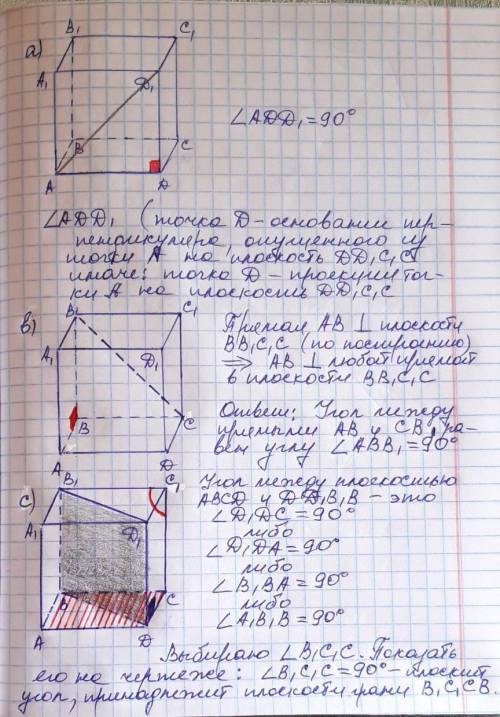 а)
B₁ C₁
A₁ D₁
B C
A D
∠ADD₁ = 90°
∠ADD₁ (точка D – основании пер-
пендикуляра, опущенного из
точки А на плоскость DD₁C₁C
иначе: точка D – проекции точ-
ки А на плоскость DD₁C₁C
в)
B₁ C₁
A₁ D₁
B C
A D
Прямая AB ⊥ плоскости
BB₁C₁C (по построению)
⇒ AB ⊥ любой прямой
в плоскости BB₁C₁C
Ответ: Угол между
прямыми AB и CB₁ ра-
вен углу ∠ABB₁ = 90°
с)
B₁ C₁
A₁ D₁
B C
A D
Угол между плоскостью
ABCD и DD₁B₁B – это
∠D₁DC = 90°
либо
∠D₁DA = 90°
либо
∠B₁BA = 90°
либо
∠A₁B₁B = 90°
Выбираю ∠B₁C₁C. Показать
его на чертеже: ∠B₁C₁C = 90° – плоский
угол, принадлежит плоскости грани B₁C₁CB.